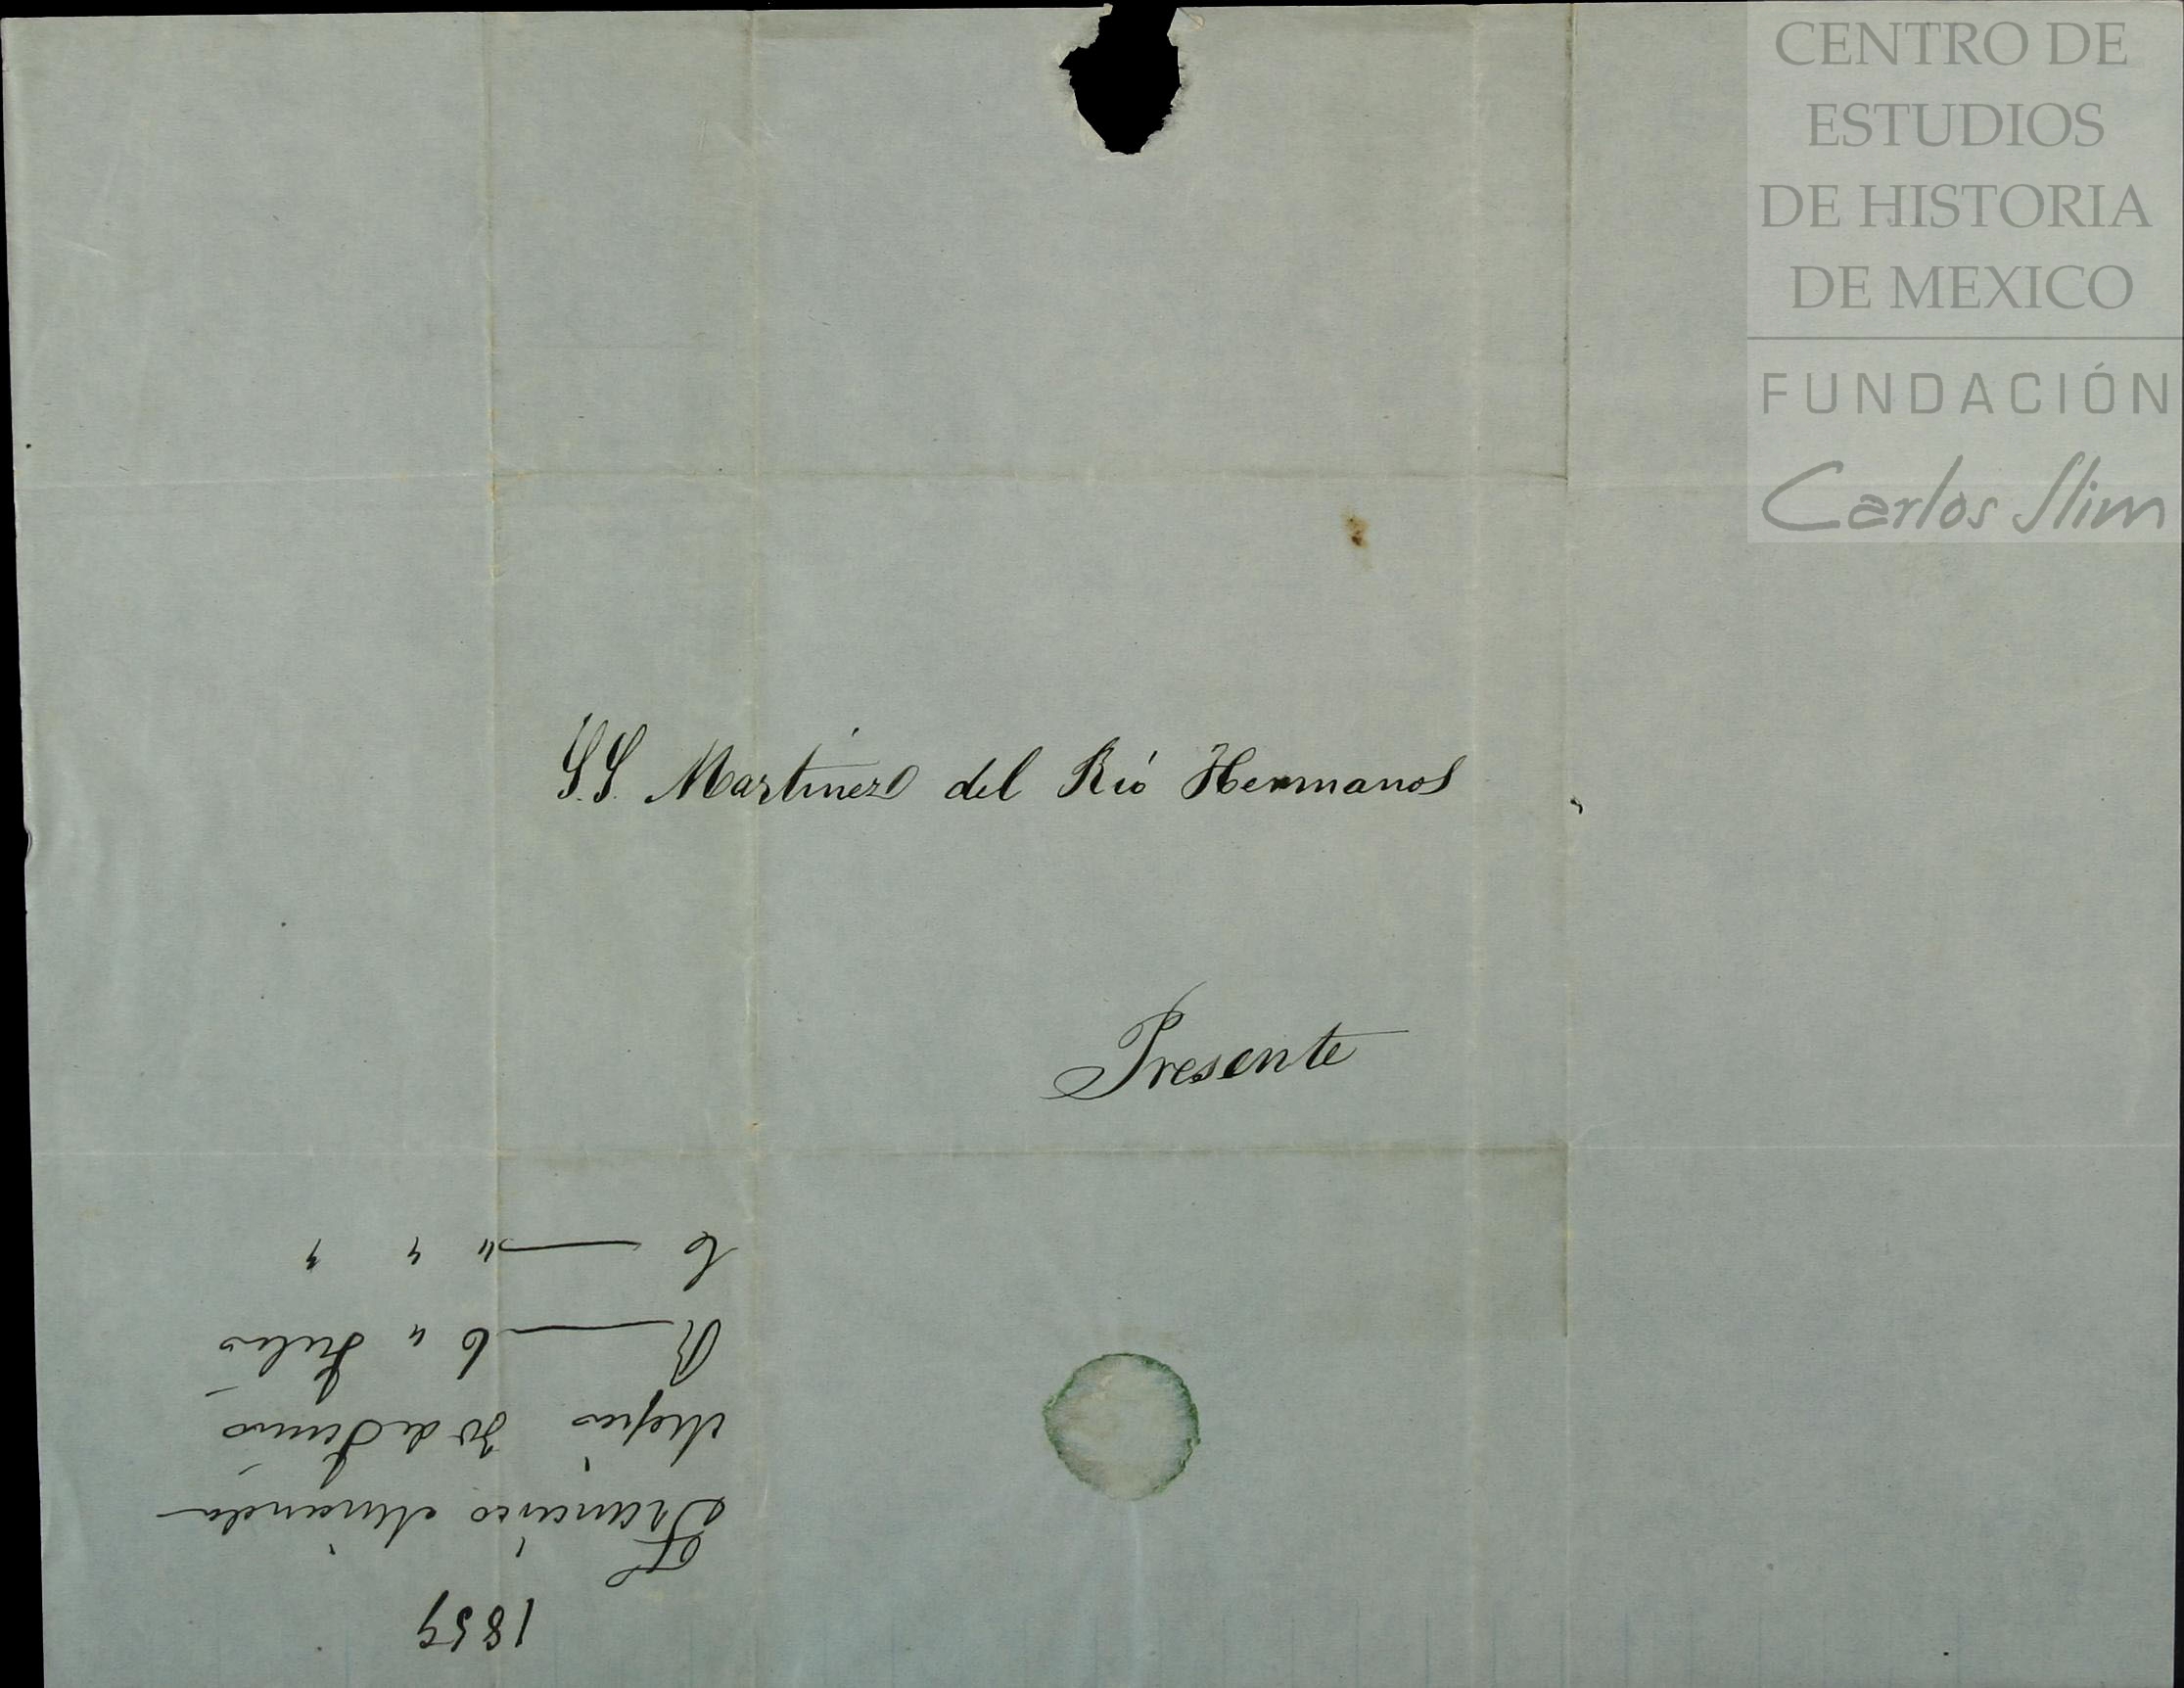 CENTRO DE
ESTUDIOS
DE HISTORIA
DE MEXICO
FUNDACIÓN
Carlos Slim
S.S. Martinez del Rió Hermanos
Presente
1859
Francisco Miranda
Mejico 30 de Junio
R 6 " Julio
C " " "